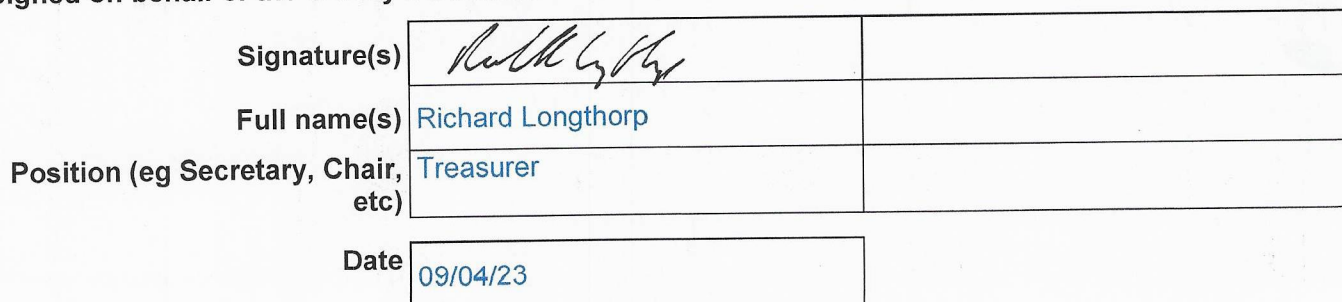 Signature(s)
Full name(s) Richard Longthorp
Position (eg Secretary, Chair, Treasurer
etc)
Date 09/04/23